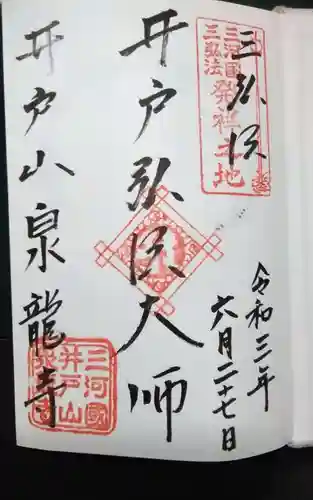 三弘法
三河國
三弘法
発祥之地
井戸弘法大師
令和三年
六月二十七日
井戸山泉龍寺
三河國
井戸山
泉龍寺